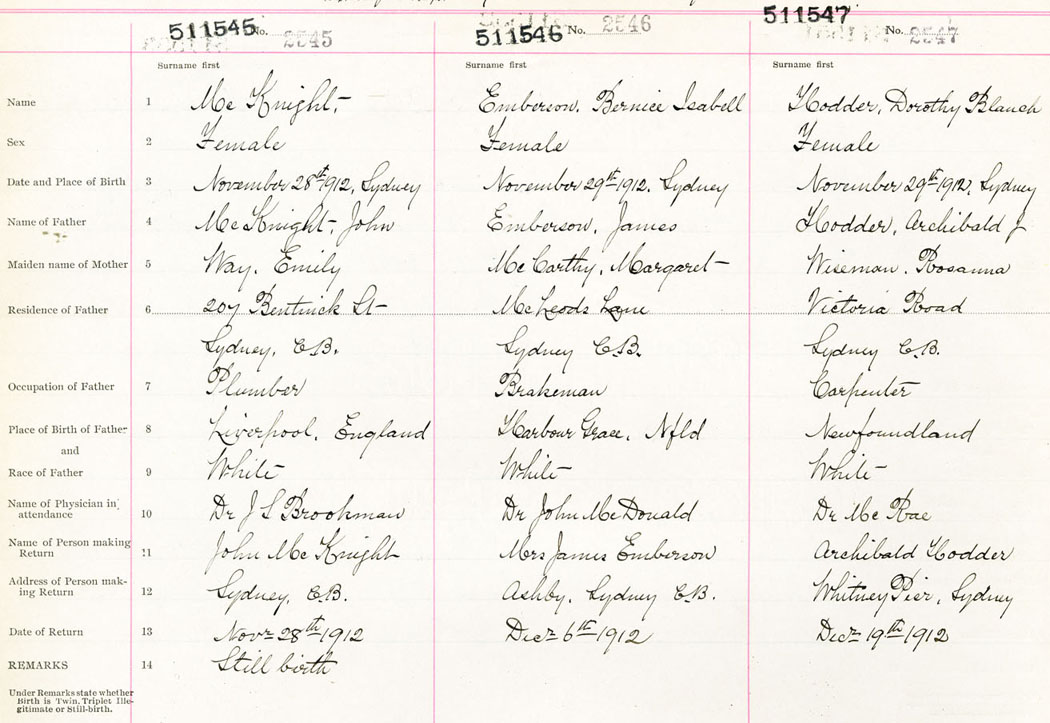 511545 No. 2545 511546 No. 2546 511547 No. 2547
Surname first Surname first Surname first
Name 1 Mc Knight Emberson, Bernice Isabell Hodder, Dorothy Blanch
Sex 2 Female Female Female
Date and Place of Birth 3 November 28th 1912, Sydney November 29th 1912, Sydney November 29th 1912, Sydney
Name of Father 4 McKnight, John Emberson, James Hodder, Archibald J
Maiden name of Mother 5 Way, Emily McCarthy, Margaret Wiseman, Rosanna
Residence of Father 6 207 Bentinck St McLeods Lane Victoria Road
Sydney, C.B. Sydney C.B. Sydney C.B.
Occupation of Father 7 Plumber Brakeman Carpenter
Place of Birth of Father 8 Liverpool, England Harbour Grace, Nfld Newfoundland
and
Race of Father 9 White White White
Name of Physician in
attendance 10 Dr J S Brookman Dr John McDonald Dr Mc Rae
Name of Person making
Return 11 John Mc Knight Mrs James Emberson Archibald Hodder
Address of Person mak-
ing Return 12 Sydney, C.B. Ashby, Sydney C.B. Whitney Pier, Sydney
Date of Return 13 Novr 28th 1912 Decr 6th 1912 Decr 19th 1912
REMARKS 14 Still birth
Under Remarks state whether
Birth is Twin, Triplet Ille-
gitimate or Still-birth.